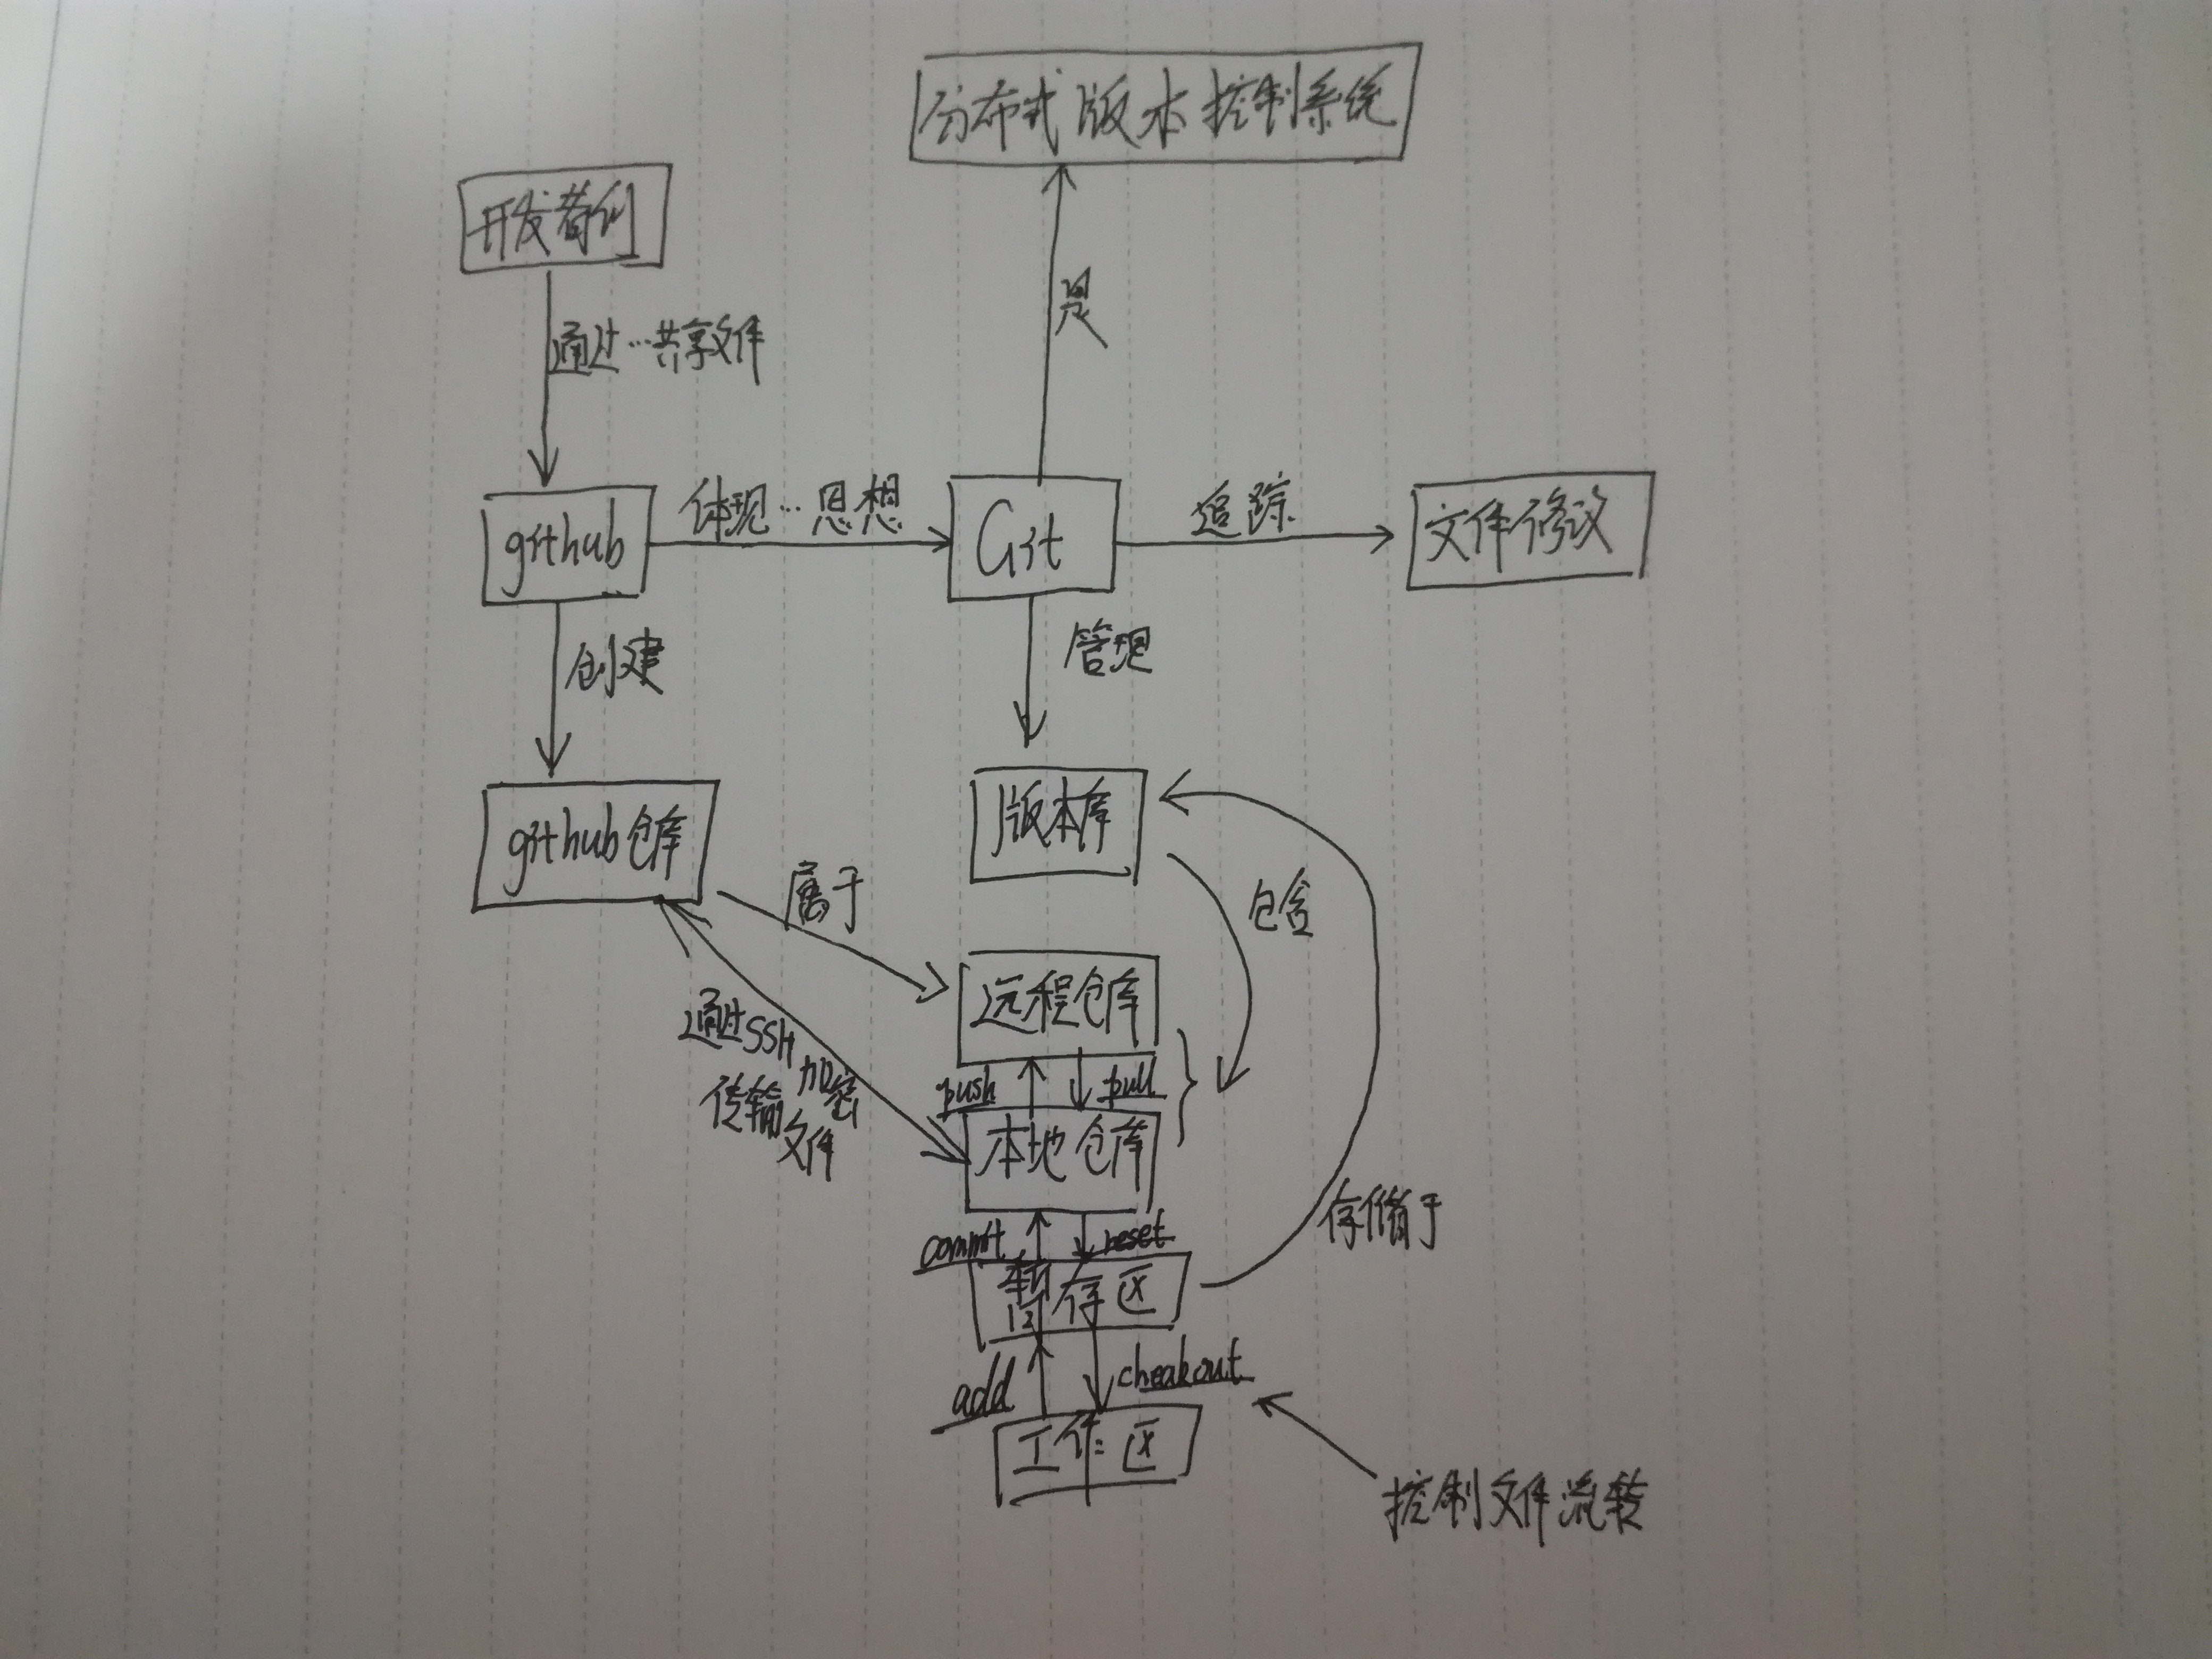 分布式版本控制系统
开发者们
是
通过…共享文件
github
体现…思想
Git
追踪
文件修改
创建
管理
github仓库
版本库
属于
包含
远程仓库
通过SSH加密
传输文件
push
pull
本地仓库
存储于
commit
reset
暂存区
add
cheakout
工作区
控制文件流转